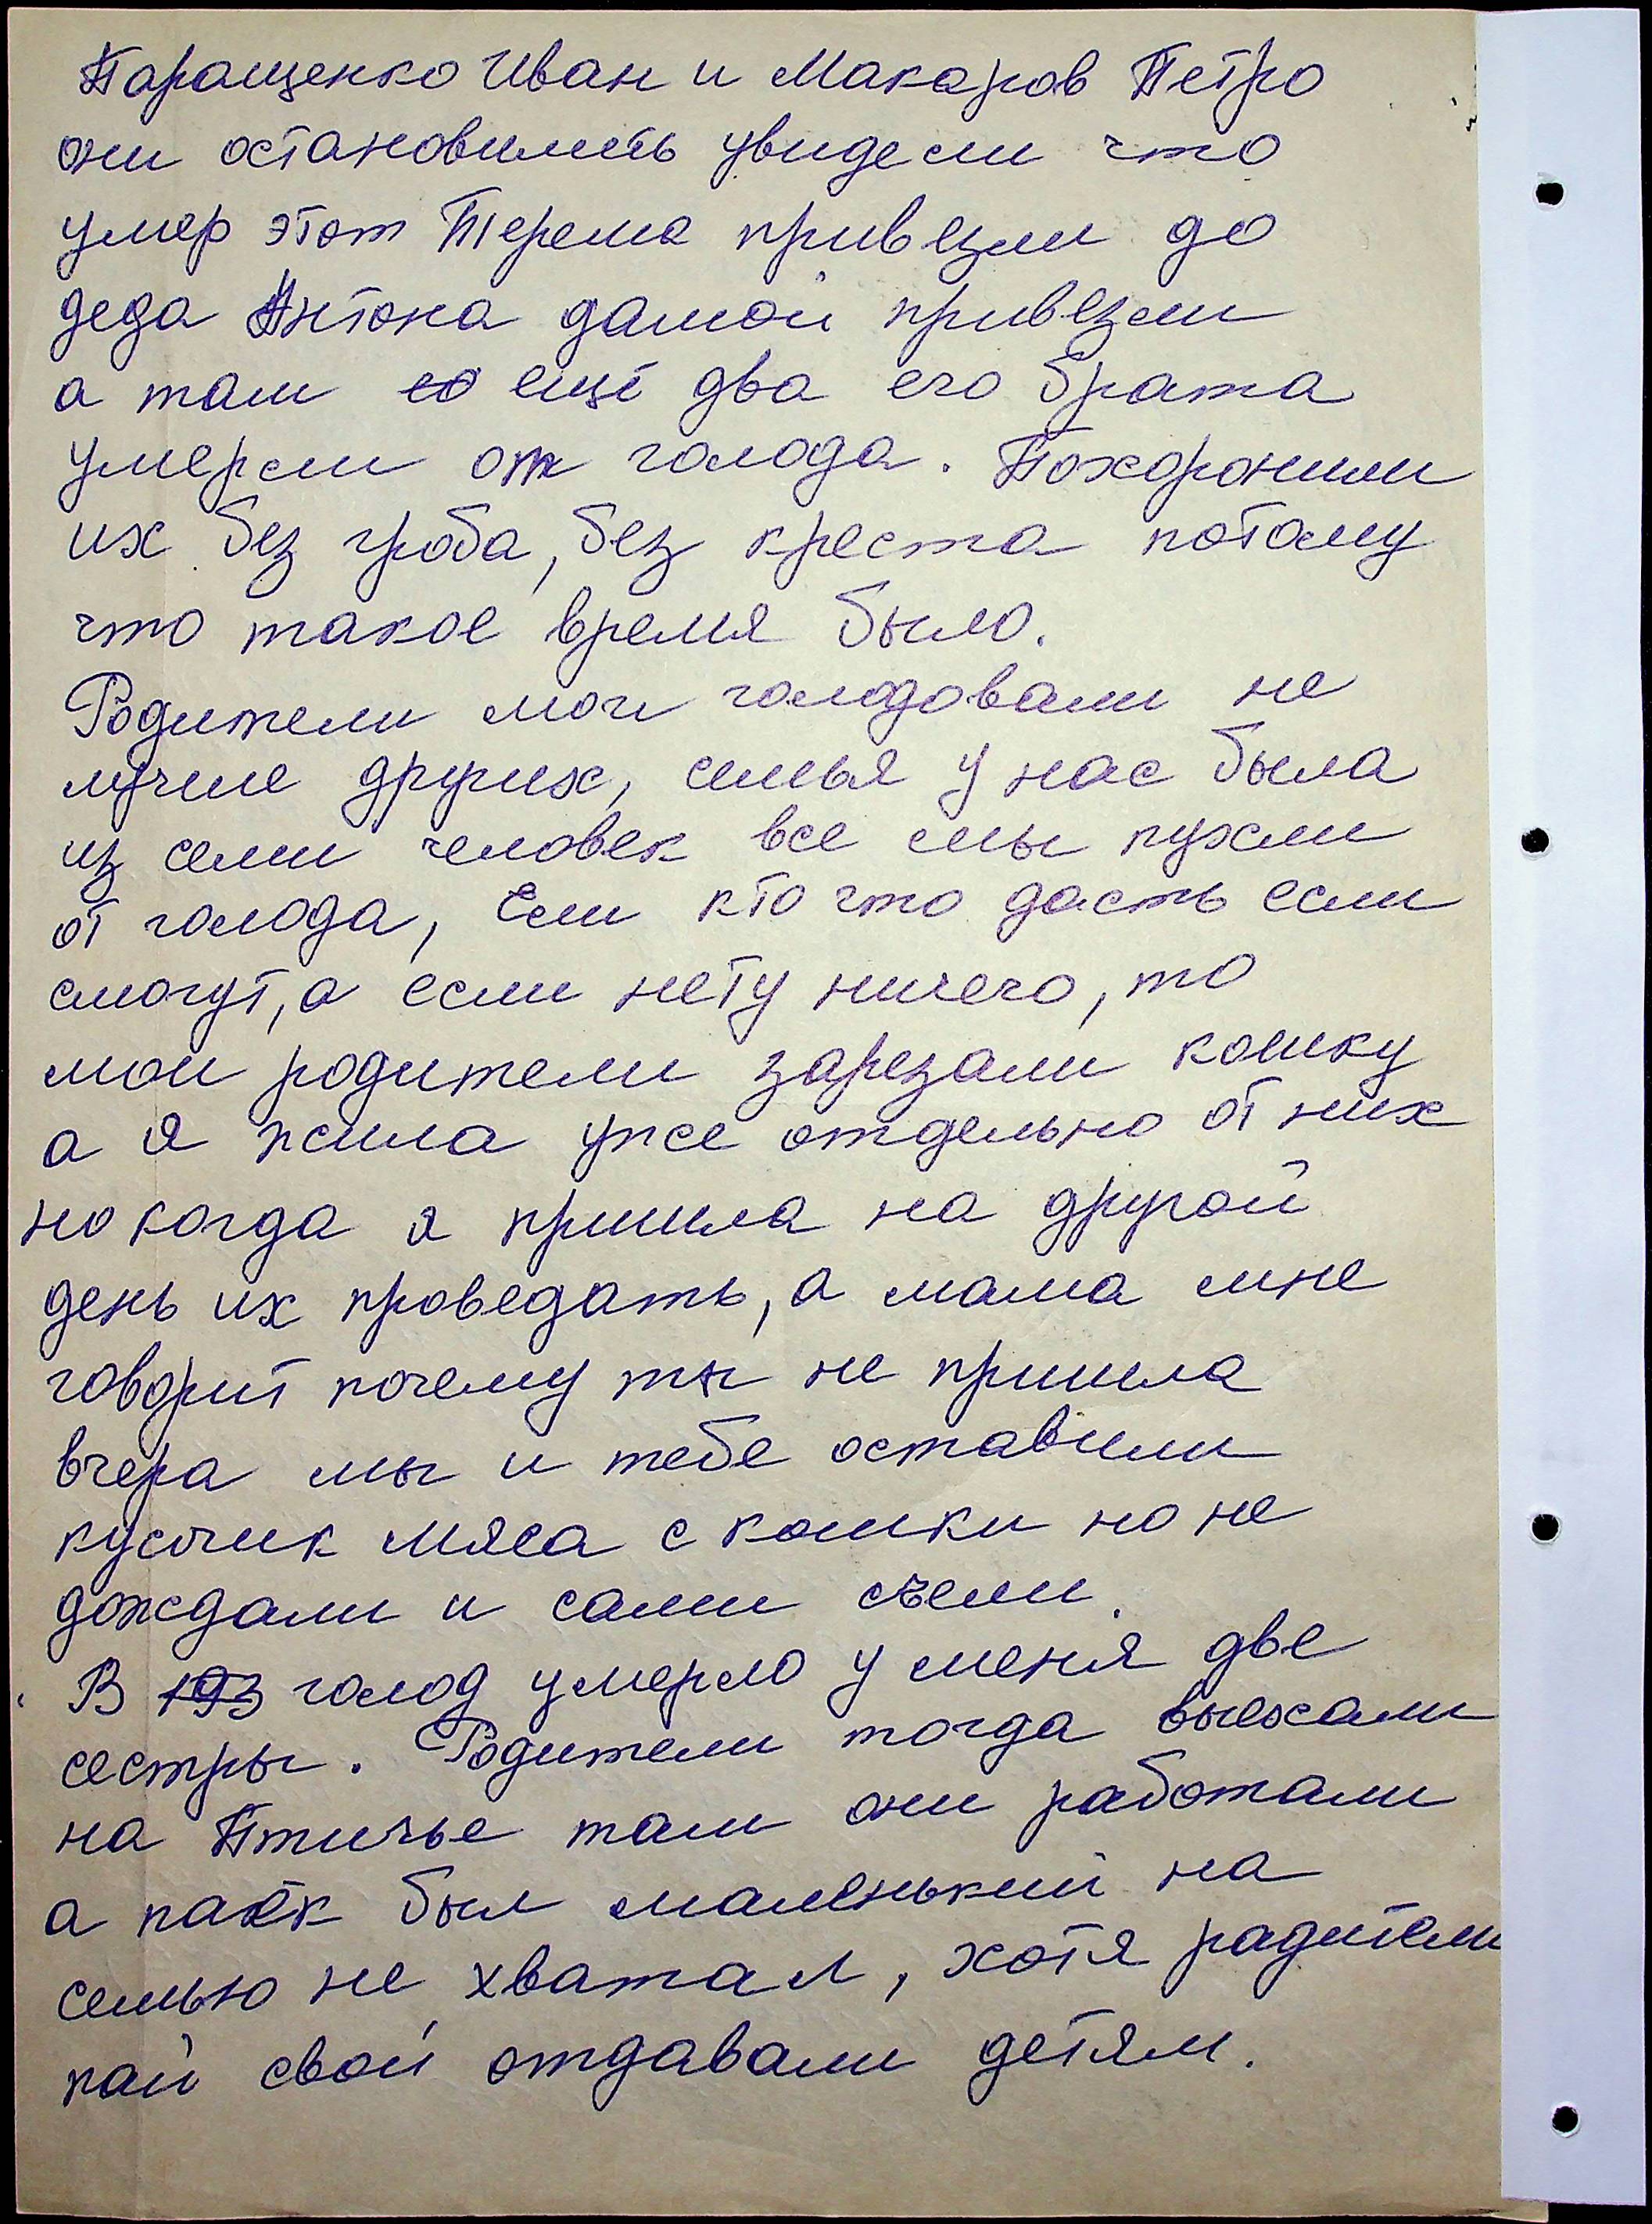 Таращенко Иван и Макаров Петро
они остановились увидели что
умер этот Терема привезли до
деда Антона дамой привезли
а там ео ещё два его брата
умерли от голода. Похоронили
их без гроба, без креста потому
что такое время было.
Родители мои голодовали не
лучше других, семья у нас была
из семи человек все мы пухли
от голода, Ели кто что дасть если
смогут, а если нету ничего, то
мои родители зарезали кошку
а я жила уже отдельно от них
но когда я пришла на другой
день их проведать, а мама мне
говорит почему ты не пришла
вчера мы и тебе оставили
кусочик мяса с кошки но не
дождали и сами съели.
В 193 голод умерло у меня две
сестры. Родители тогда выехали
на Птичье там они работали
а паёк был маленький на
семью не хватал, хотя радители
пай свой отдавали детям.